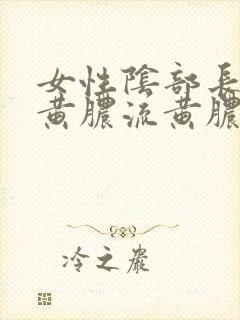 女性陰部長
黃膿流黃膿
冷之嚴